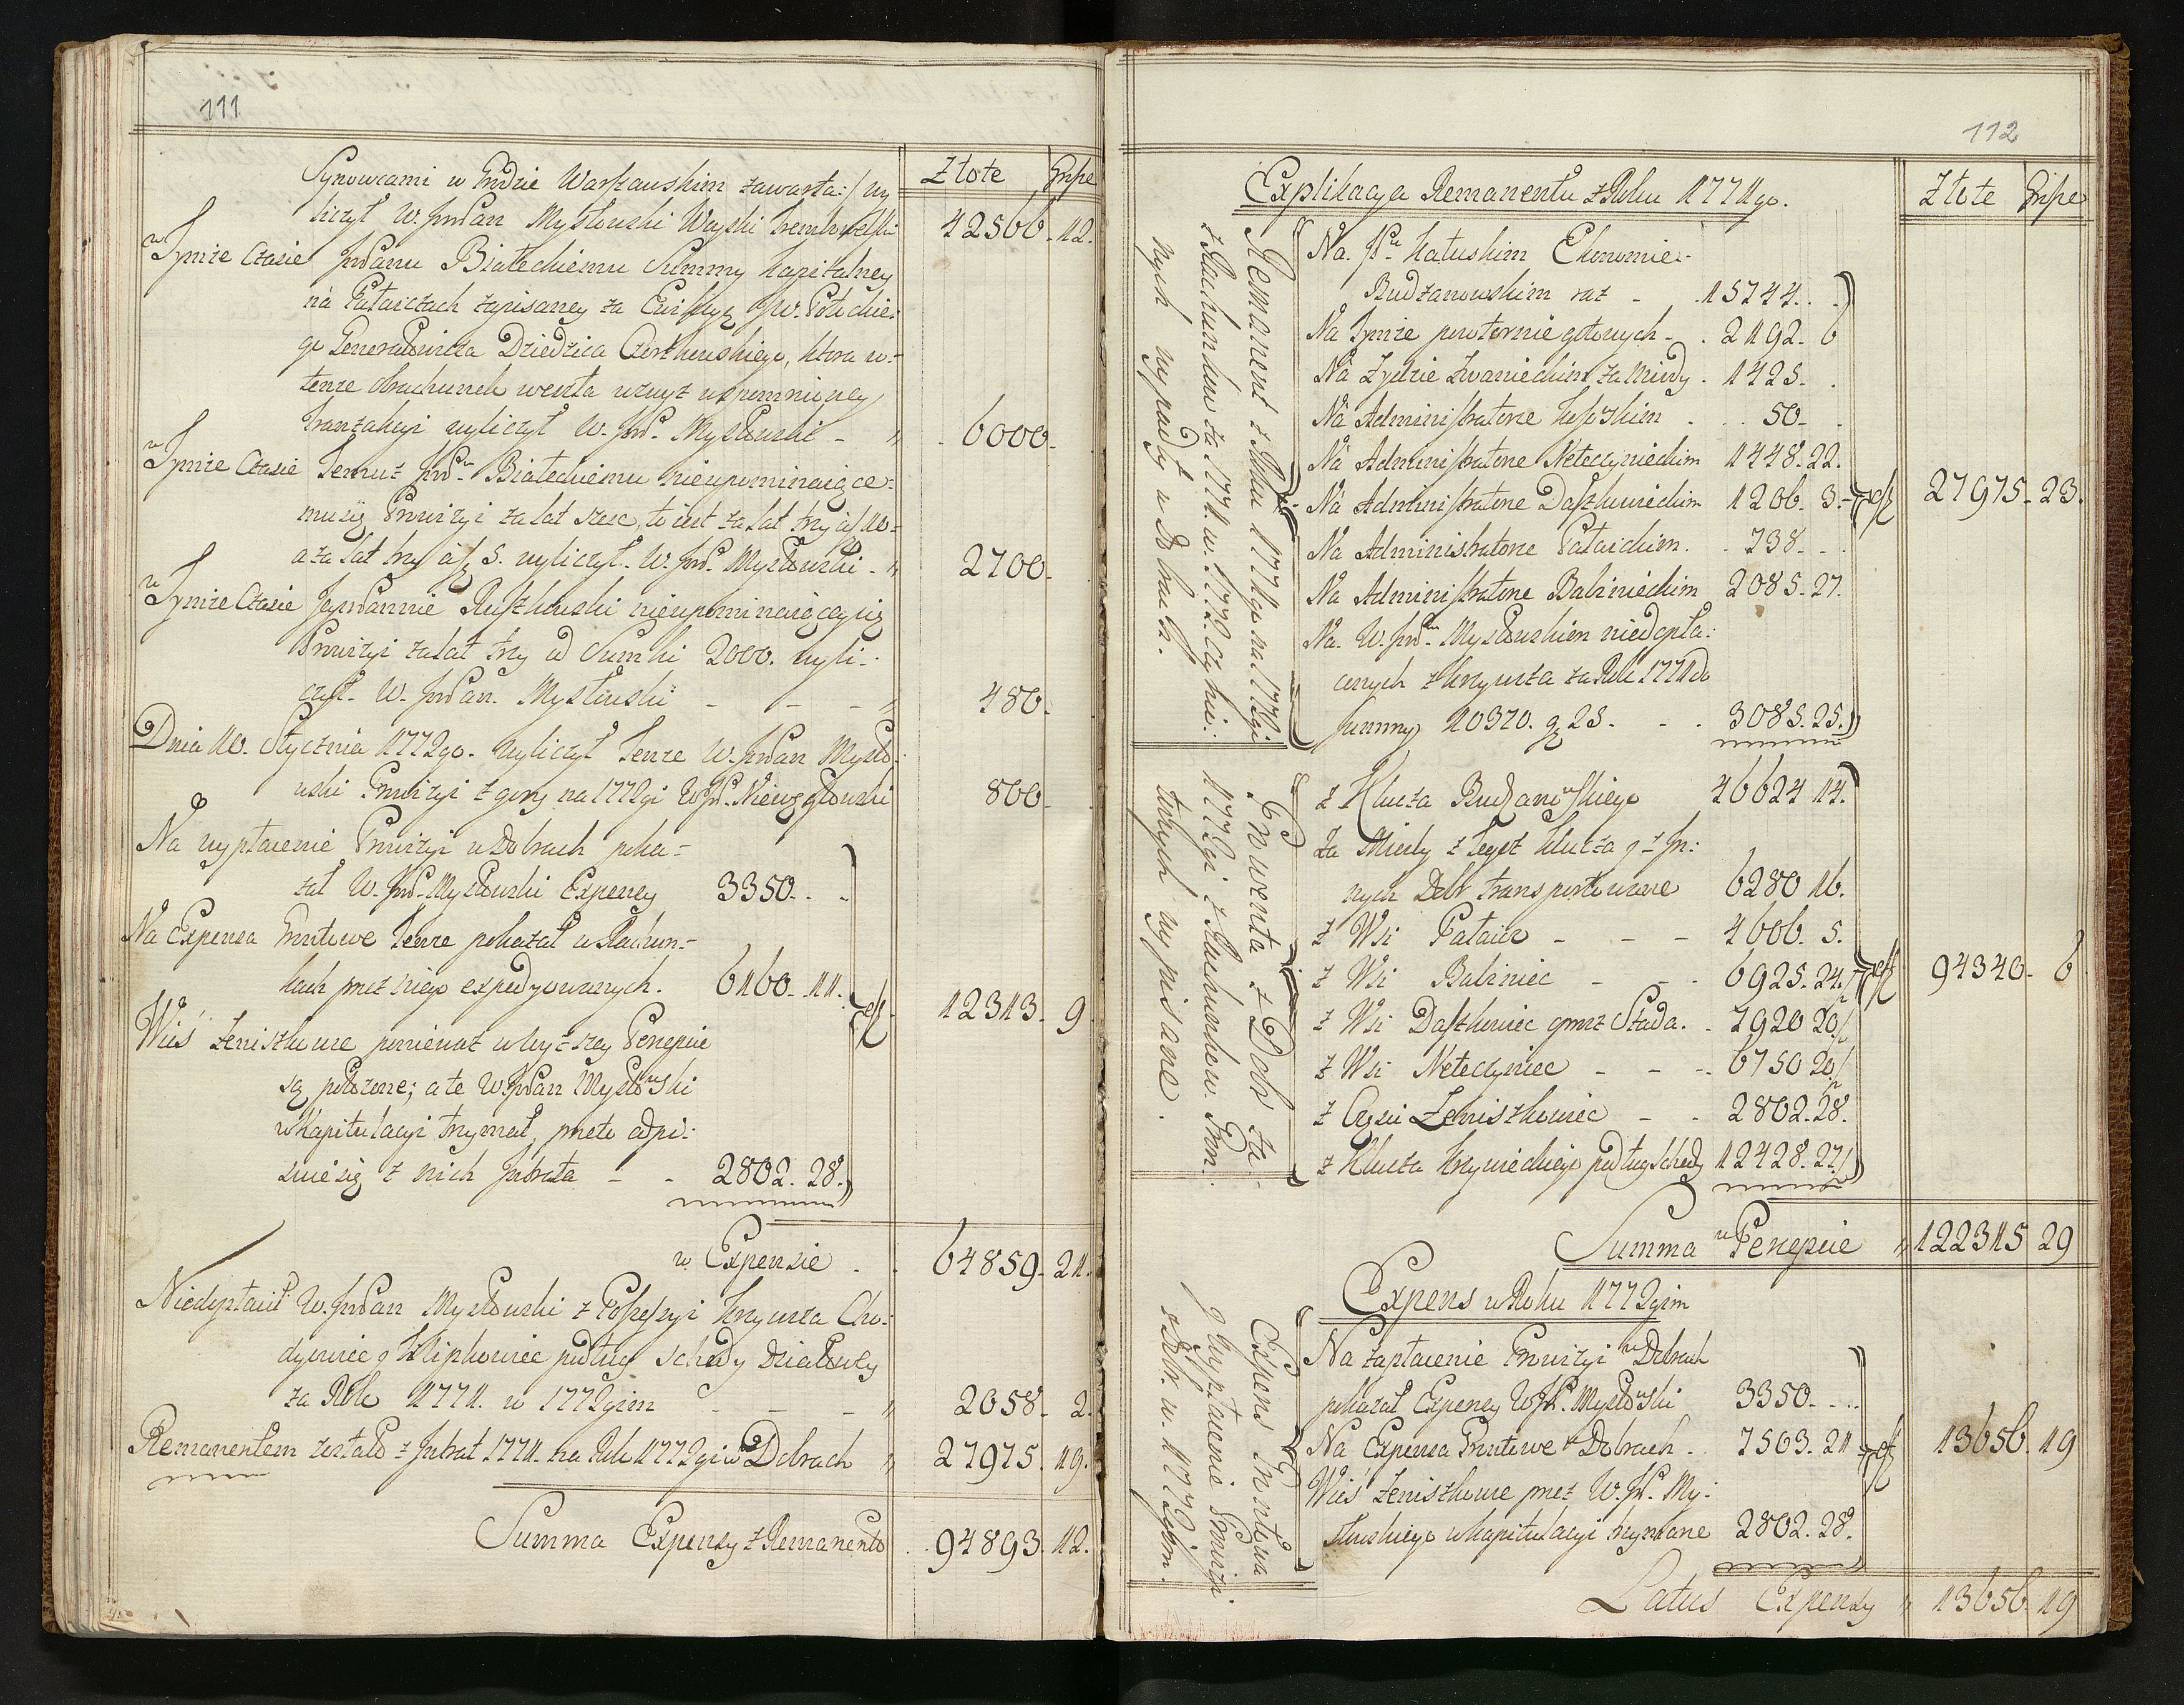 111
Złote Grsze
Synowcami w Grodzie Warszawskim zawarta:/ wy
liczył W. JmPan Mysłowski Woyski Trembowelski 42566. 12.
w Tymże Czasie JmPanu Białeckiemu Summy kapitalney
na Pałaiczach zapisaney za Ewikcyą JW. Potockie:
go Generałowicza Dziedzica Czortkowskiego, ktora w-
tenże obrachunek weszła wzwyż wspomnioney
tranzakcyi wyliczył W. JmP. Mysłowski - " 6000-
w Tymże Czasie Temuż JmPu Białeckiemu nieupominaiące-
mu się Prowizyi za lat sześć, to iest za lat trzy a/ 10-
a za lat trzy a/ 5. wyliczył. W. JmP. Mysłowski - " 2700-
w Tymże Czasie JeymPannie Ruszkowski nieupominaiącey się
Prowizyi za lat trzy od Sumki 2000. wyli-
czył. W. JmPan. Mysłowski - - - " 480.
Dnia 10. Stycznia 1772go. wyliczył Tenże W. JmPan Mysło-
wski Prowizyi z gory na 1772gi WJP. Niewęgłowski 800-
Na wypłacenie Prowizyi w Dobrach poka-
zał W. JmP. Mysłowski Expensy 3350. . .
Na Expensa Gruntowe Tenże pokazał w Rachun-
kach przez niego expedyowanych. 6160. 11.
12313. 9
Wieś Zeniszkowce ponieważ w wyższey Percepcie
są położone; a te W. JmPan Mysłowski
w Kapitulacyi trzymał, przeto odpi:
suie się z nich Intrata - - 2802. 28.
w Expensie . . 64859. 21.
Niedopłacił W. JmPan Mysłowski z Possessyi Krzywcza Cho:
dyiowiec y Filipkowiec podług Schedy Działowey
za Rok 1771. w 1772gim - - - " 2058. 2.
Remanentem zostało z Intrat 1771. na Rok 1772gi w Dobrach " 27975. 19.
Summa Expensy z Remanento . 94893. 12.
112
Złote Grsze
Explikacya Remanentu z Roku 1771go.
Remanent z Roku 1771go na 1772gi
z Rachunkow za 1771. w. 1772. czynio:
nych wypadły w Dobrach.
Na. JPu Kałuskim Ekonomie-
Budzanowskim raz - . 15744. . .
Na Tymże powtornie gotowych - . 2192. 6
Na Zydzie Zwanieckim za Miody . 1425. .
Na Administratorze . . 50- .
Na Administratorze Neteczynieckim 1448. 22.
Na Administratorze Daszkowieckim 1206. 3.
27975. 23.
Na Administratorze Pałaickim. . 738- . .
Na Administratorze Babinieckim 2085. 27.
Na. W. JmPu Mysłowskim niedopła:
conych z Krzywcza za Rok 1771 do
Summy 10370. g. 25. - . . 3085. 25.
Prowenta z Dobr za
1772gi z Rachunkow. Prow.
towych wypisane.
z Klucza Budzanowskiego 46624 14.
Za Miody z Tegoż Klucza y z In:
nych Dobr transportowane 6280 16.
z Wsi Pałaicz - - - 4606. 5.
z Wsi Babiniec - - . 6925. 24.
94340. 6
z Wsi Daszkowiec oprocz Stada. . 7920 20
z Wsi Neteczyniec - - - . 6750 20
z Części Zeniszkowiec - . 2802. 28.
z Klucza Krzywieckiego podług Schedy 12428. 27
Summa w Percepcie " 122315 29
Expens w Roku 1772gim
Expens Gruntowa
y Wypłacenie Prowizyi.
z Dobr. w. 1772gim.
Na zapłacenie Prowizyi w Dobrach
pokazał Expensy WJP. Mysłowski 3350. . .
Na Expensa Gruntowe w Dobrach . 7503. 21
13656. 19
Wieś Zeniszkowce przez W. JP. My:
słowskiego w kapitulacyi trzymane 2802. 28.
Latus Expensy " 13656. 19